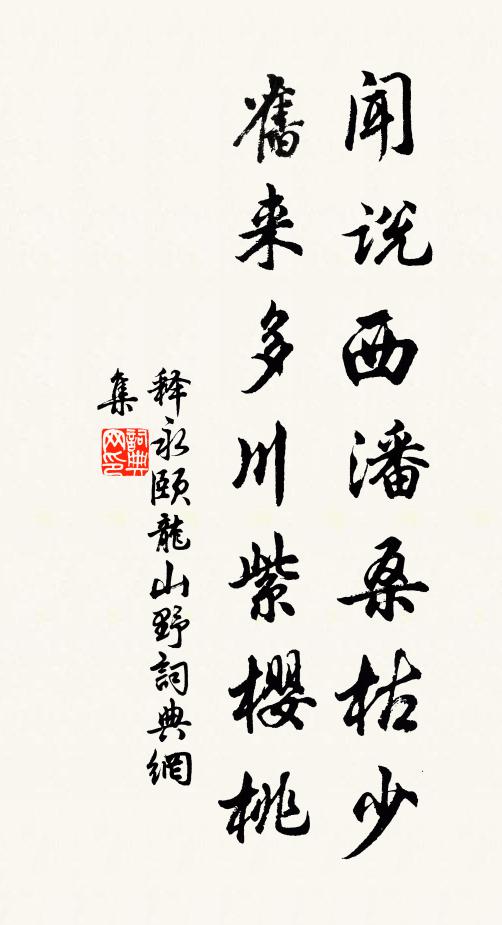 闻说西潘桑枯少
舊来多川紫櫻桃
释永颐龍山野詞典網
集
詞典网印